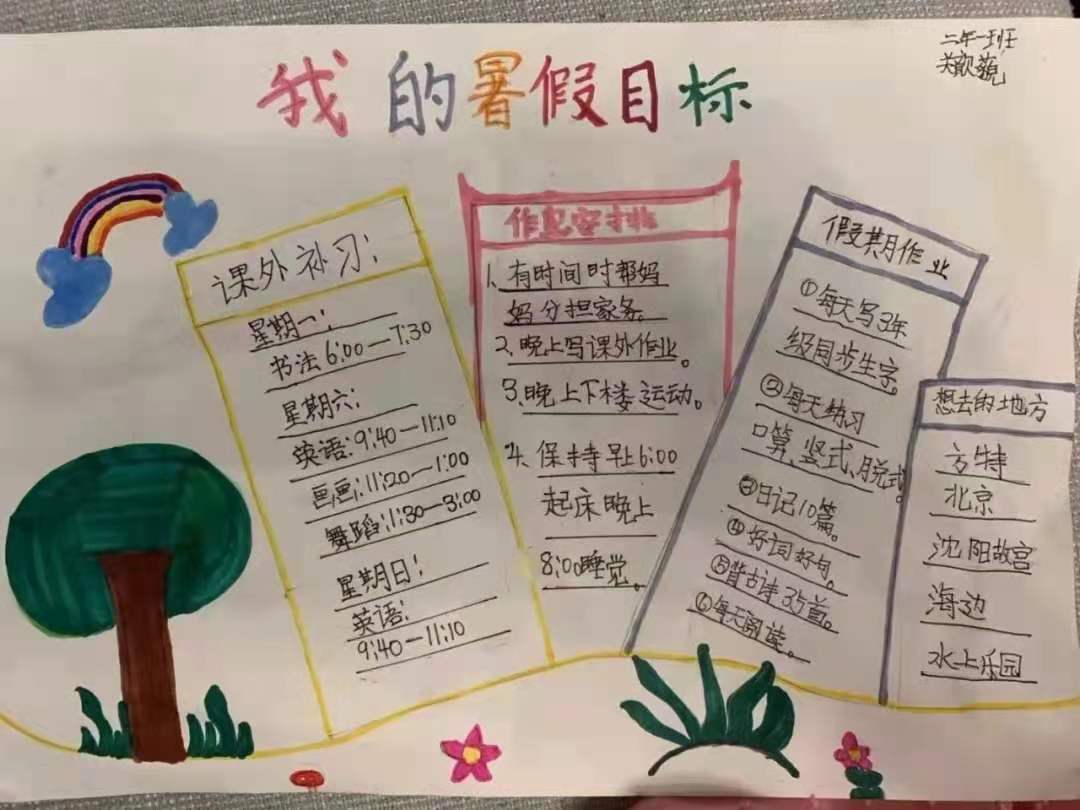 我的暑假目标
二年一班
关歆
课外补习:
星期一:
书法 6:00—7:30
星期六:
英语:9:40—11:10
画画:11:20—1:00
舞蹈:11:30—3:00
星期日:
英语:
9:40—11:10
作息安排
1、有时间时帮妈
妈分担家务。
2、晚上写课外作业。
3、晚上下楼运动。
4、保持早上6:00
起床晚上
8:00睡觉。
假期作业
①每天写3年
级同步生字。
②每天练习
口算、竖式、脱式。
③日记10篇。
④好词好句。
⑤背古诗35首。
⑥每天阅读。
想去的地方
方特
北京
沈阳故宫
海边
水上乐园